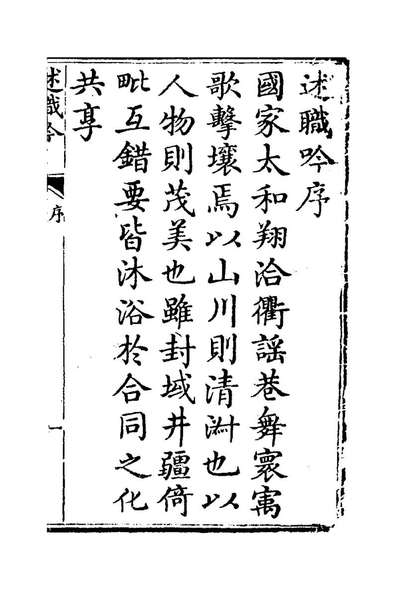 述職吟序
國家太和翔洽衢謡巷舞寰㝢
歌擊壤焉以山川則清淑也以
人物則茂美也雖封域井疆倚
毗互錯要皆沐浴於合同之化
共享
述職吟
序
一